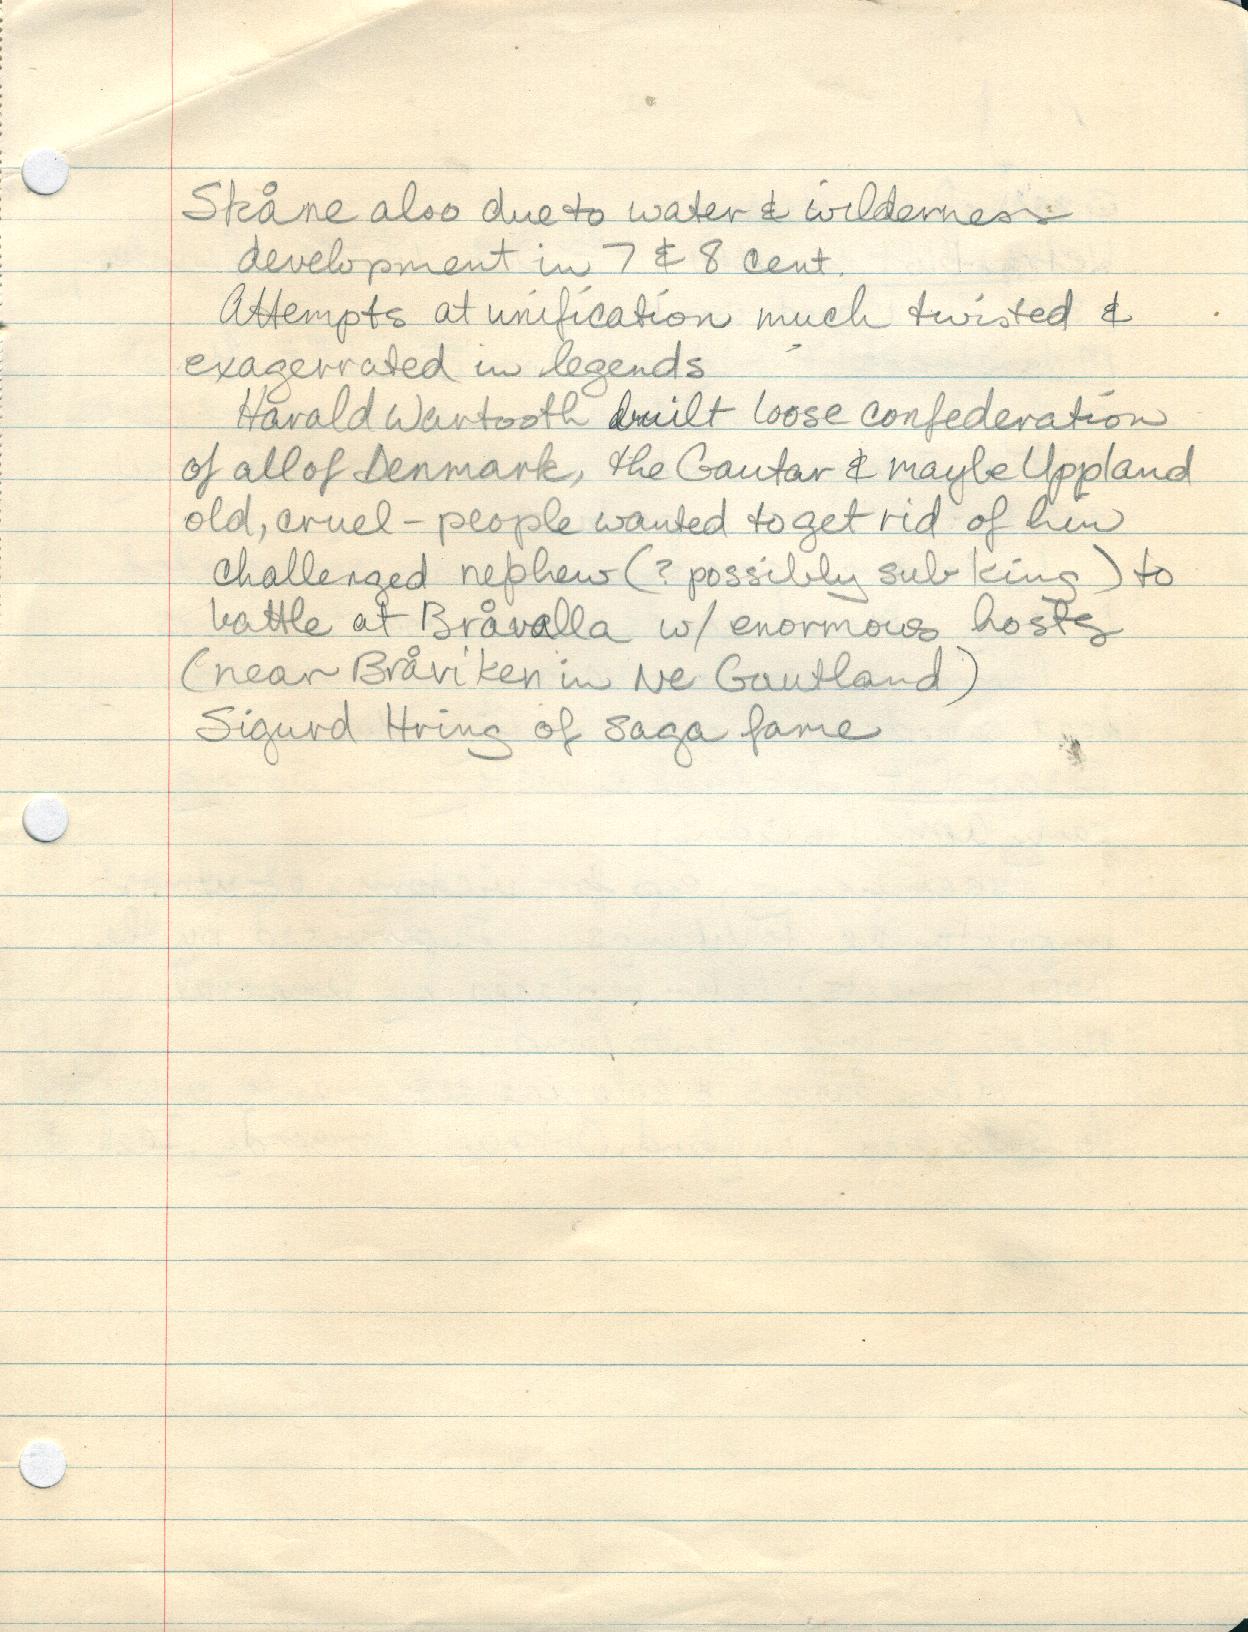 Skåne also due to water & wilderness
development in 7 & 8 cent.
Attempts at unification much twisted &
exagerrated in legends
Harald Wartooth built loose confederation
of all of Denmark, the Gautar & maybe Uppland
old, cruel - people wanted to get rid of him
challenged nephew (? possibly sub king) to
battle at Bråvalla w/ enormous hosts
(near Bråviken in NE Gautland)
Sigurd Hring of saga fame